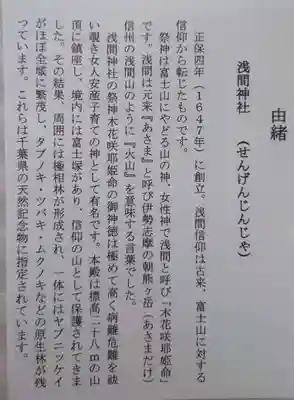 由緒
浅間神社　（せんげんじんじゃ）
正保四年（１６４７年）に創立。浅間信仰は古来、富士山に対する
信仰から転じたものです。
祭神は富士山にやどる山の神、女性神で浅間と呼び『木花咲耶姫命』
です。浅間は元来『あさま』と呼び伊勢志摩の朝熊ヶ岳（あさまだけ）
信州の浅間山のように『火山』を意味する言葉でした。
浅間神社の祭神木花咲耶姫命の御神徳は極めて高く病難危難を祓
い覗き女人安産子育ての神として有名です。本殿は標高二十八ｍの山
頂に鎮座し、境内には富士塚があり、信仰の山として保護されてきま
した。その結果、周囲には極相林が形成され、一体にはヤブニッケイ
がほぼ全域に繁茂し、タブノキ・ツバキ・ムクノキなどの原生林が残
っています。これらは千葉県の天然記念物に指定されています。